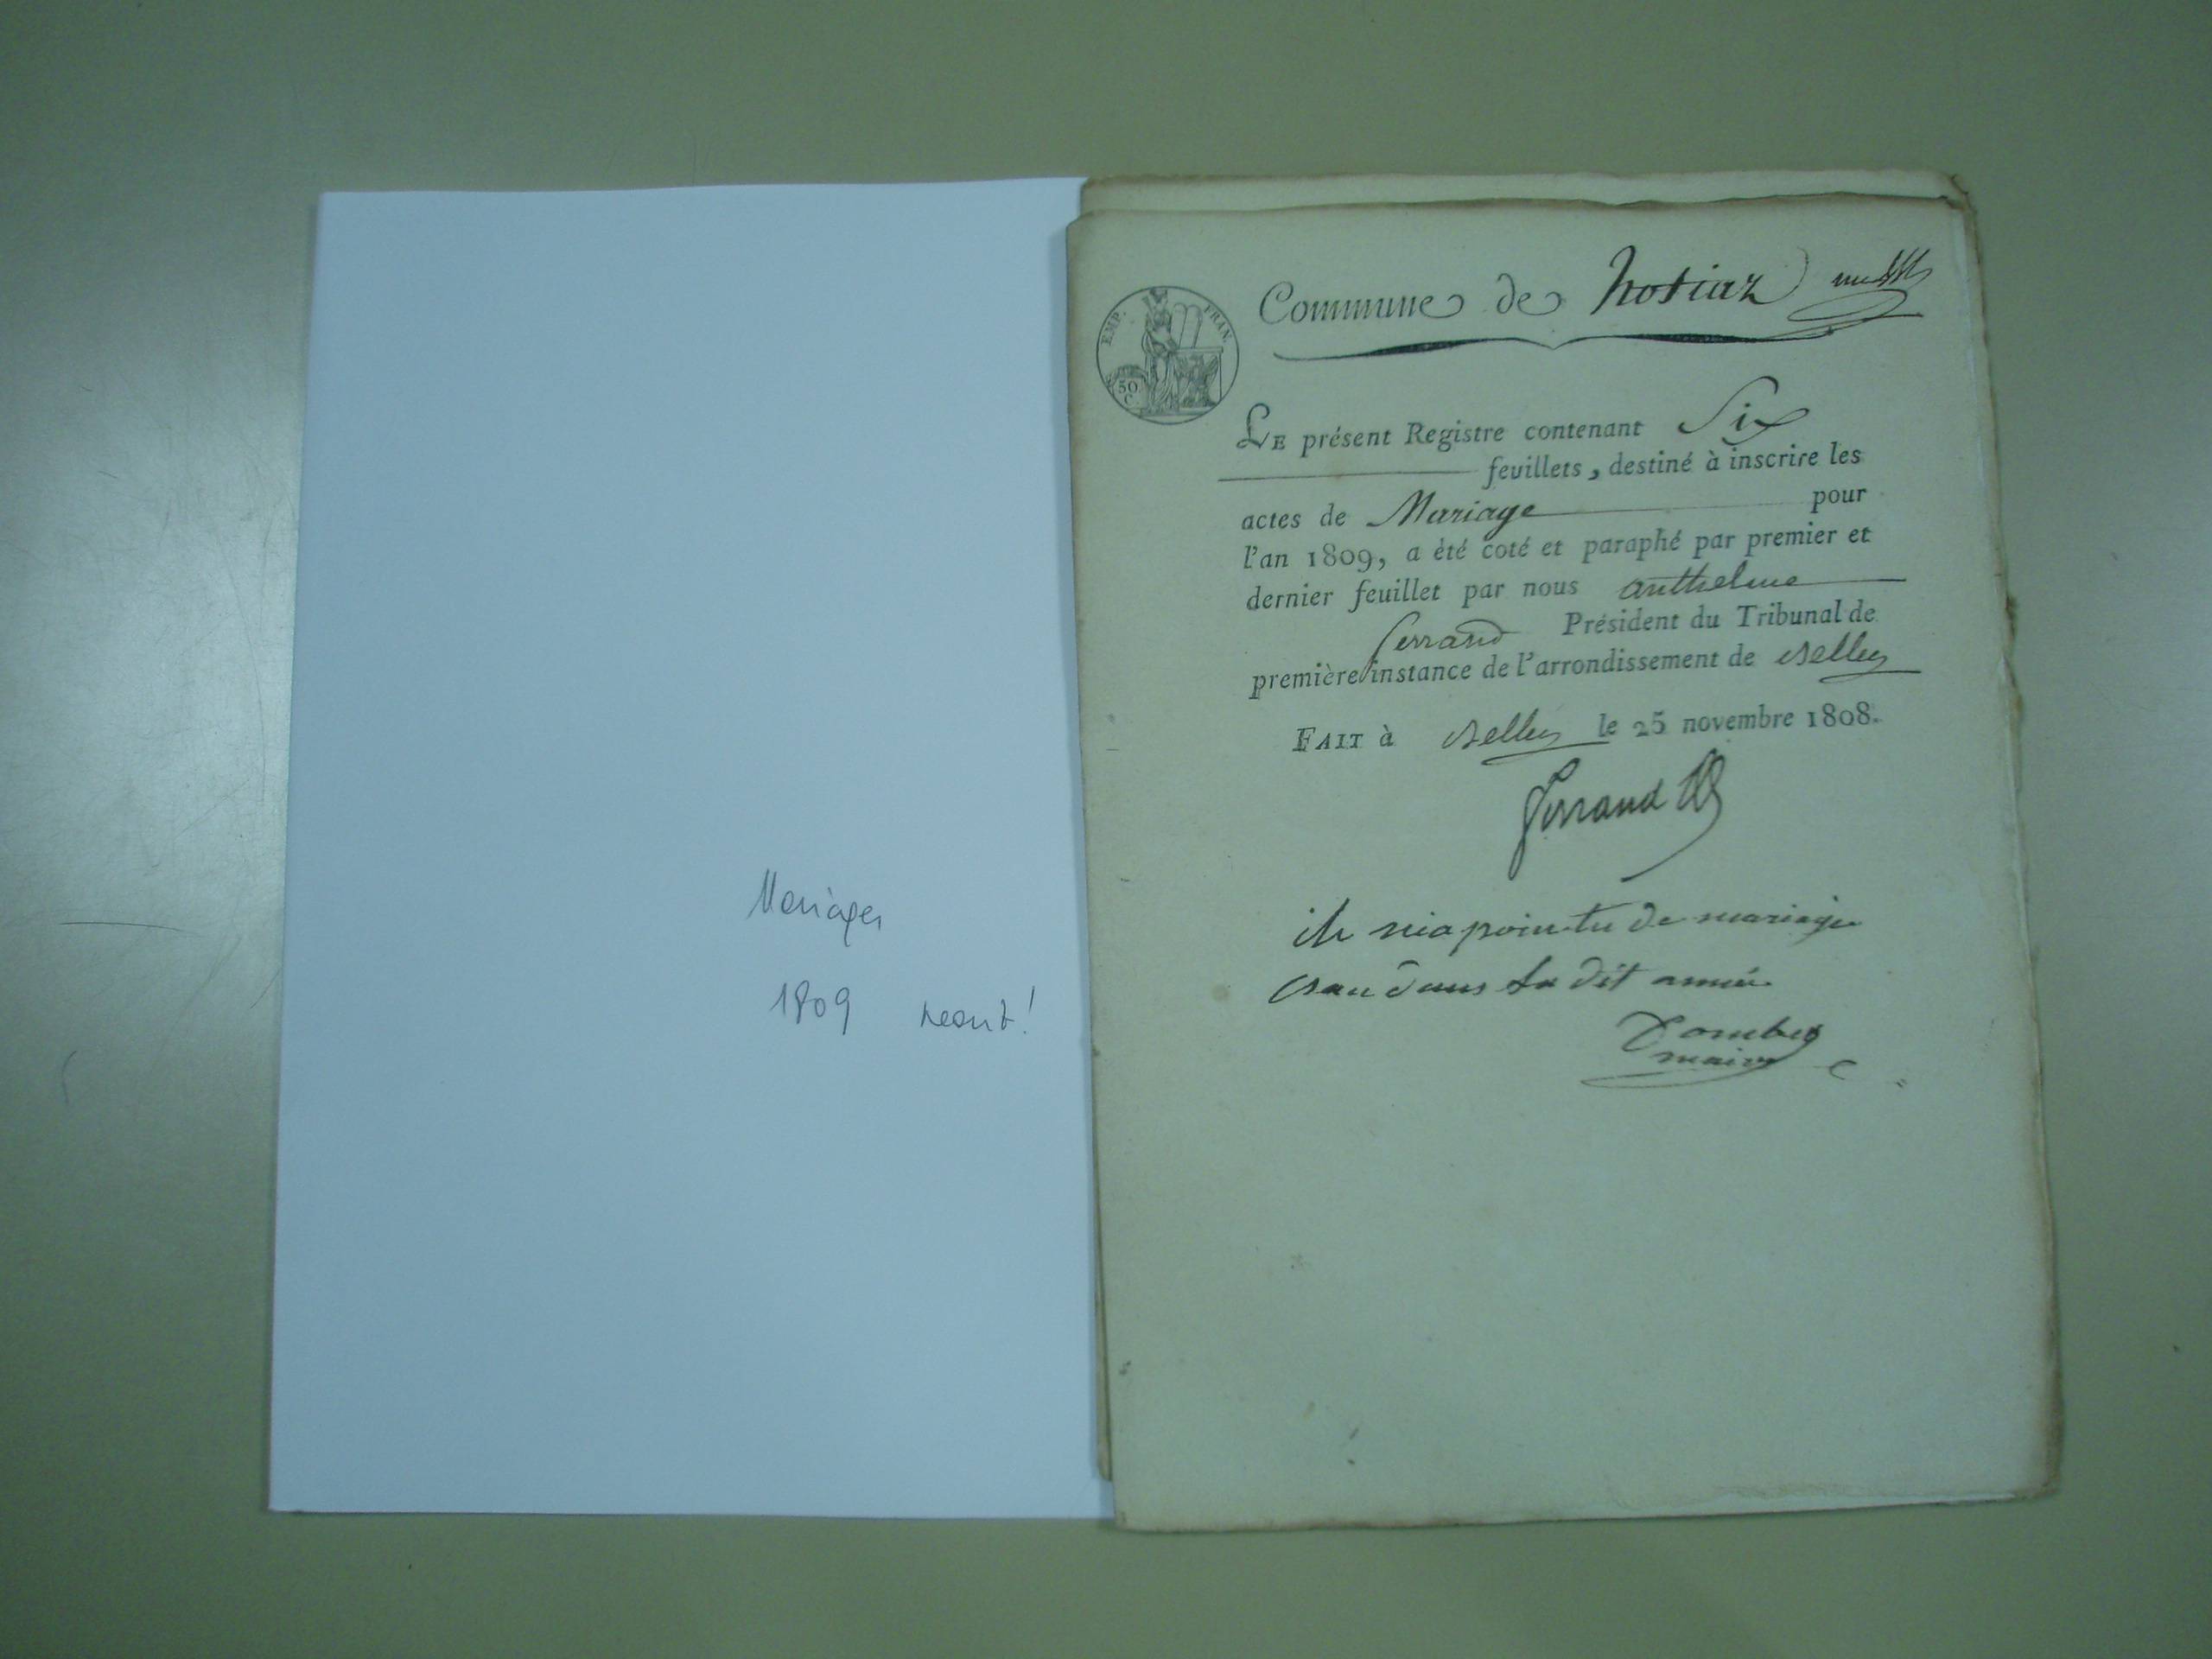 Mariages
1809 neant!
EMP. FRAN.
50 C.
Commune de hotiaz
LE présent Registre contenant Six
feuillets, destiné à inscrire les
actes de Mariage pour
l'an 1809, a été coté et paraphé par premier et
dernier feuillet par nous anthelme
ferrand Président du Tribunal de
première instance de l'arrondissement de Belley
FAIT à Belley le 25 novembre 1808.
ferrand
il nia point u de mariage
dans la dit année
maire